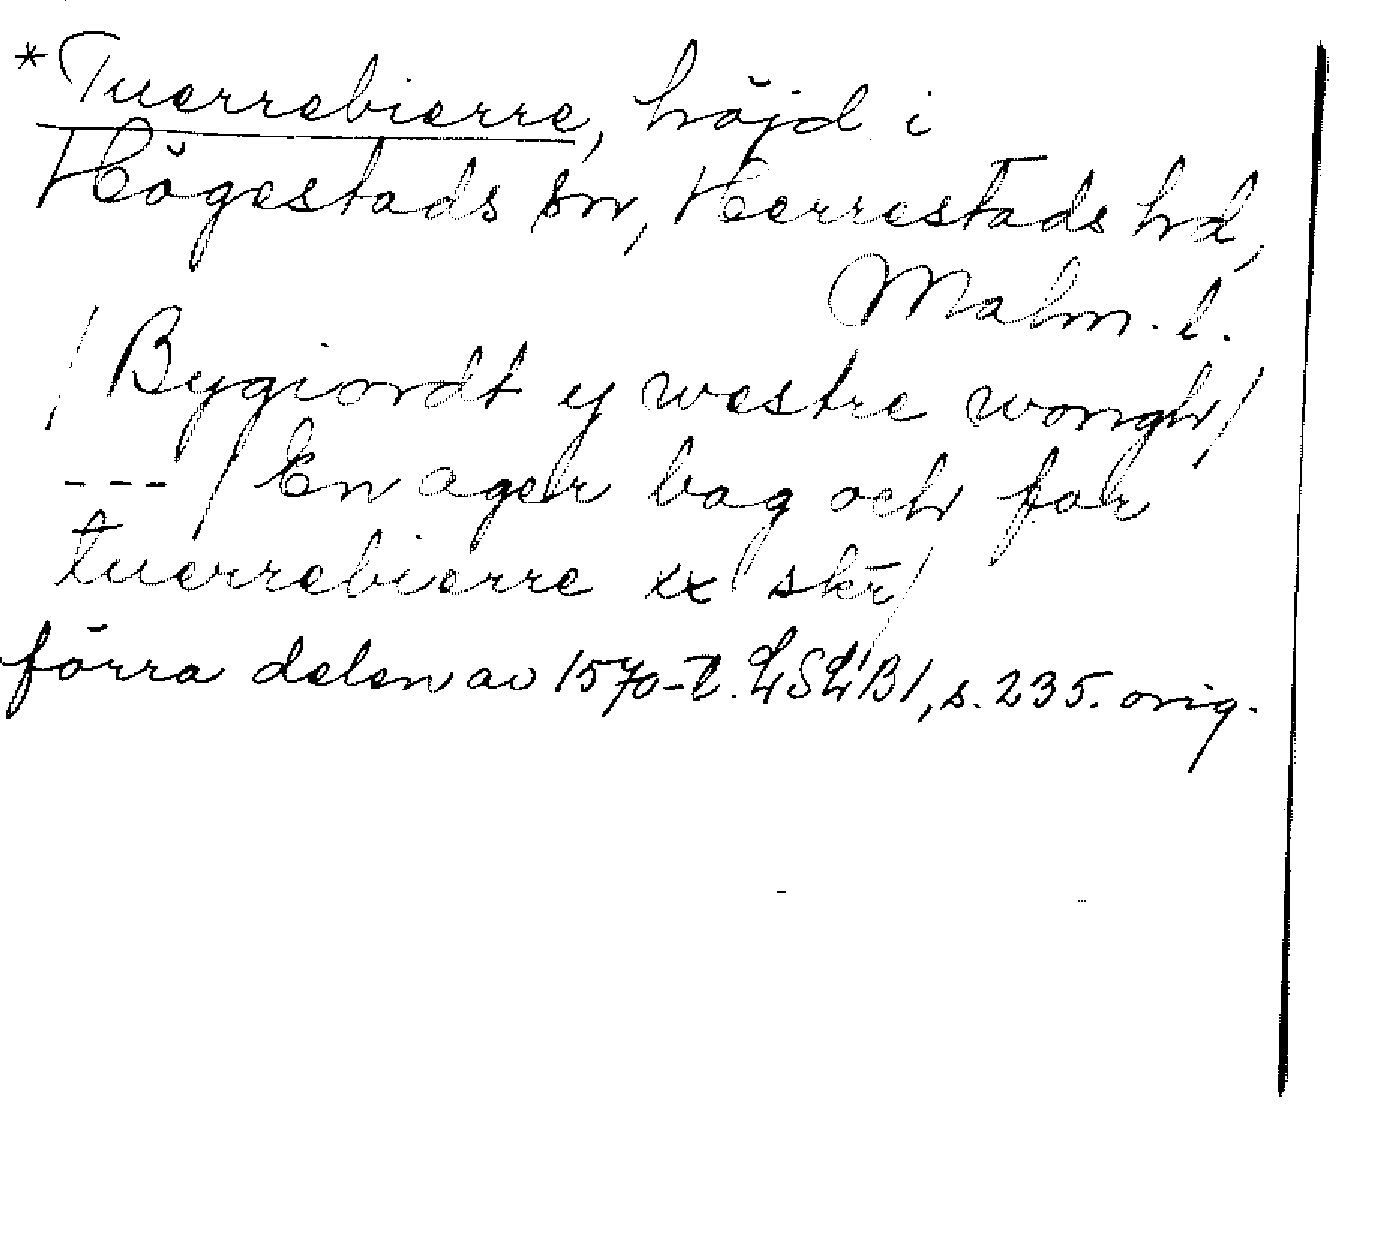 *Tuerrebierre, höjd i
Högestads sn, Herrestads hd,
Malm. l.
/Bygiordt y westre wongh/
--- /En ager bag och for
tuerrebierre xx skr̄/
förra delen av 1570-t. LSLB1, s. 235. orig.